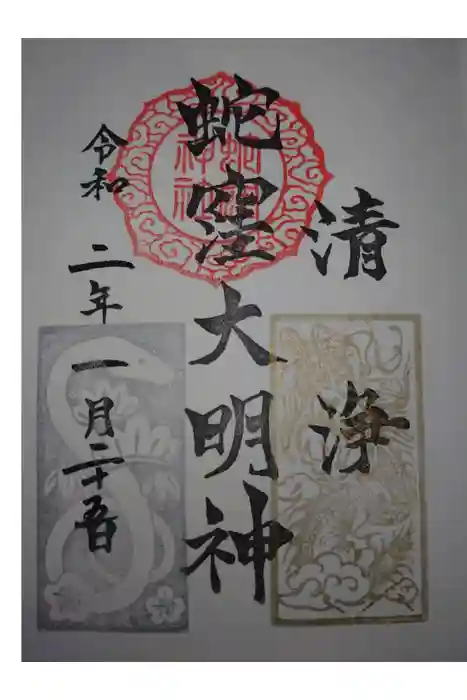 清浄
蛇窪大明神
蛇窪神社
令和二年一月二十五日